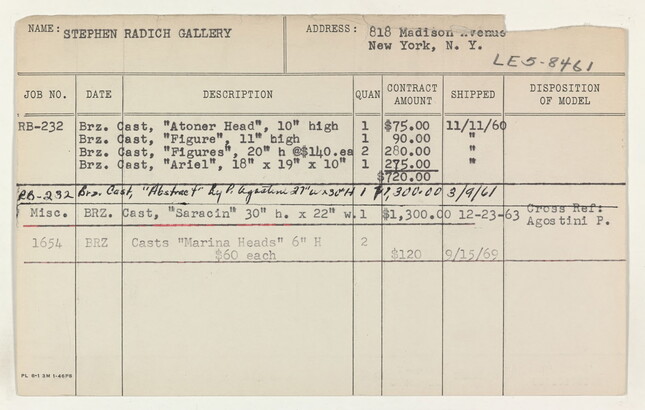 NAME: STEPHEN RADICH GALLERY
ADDRESS: 818 Madison Avenue
New York, N. Y.
LE5-8461
JOB NO. DATE DESCRIPTION QUAN CONTRACT AMOUNT SHIPPED DISPOSITION OF MODEL
RB-232 Brz. Cast, "Atoner Head", 10" high 1 $75.00 11/11/60
Brz. Cast, "Figure", 11" high 1 90.00 "
Brz. Cast, "Figures", 20" h @$140.ea 2 280.00 "
Brz. Cast, "Ariel", 18" x 19" x 10" 1 275.00 "
$720.00
RB-232 Brz. Cast, "Abstract" by P. Agostini 27" w x 30" H 1 $1,300.00 3/9/61
Misc. BRZ. Cast, "Saracin" 30" h. x 22" w. 1 $1,300.00 12-23-63 Cross Ref:
Agostini P.
1654 BRZ Casts "Marina Heads" 6" H 2
$60 each $120 9/15/69